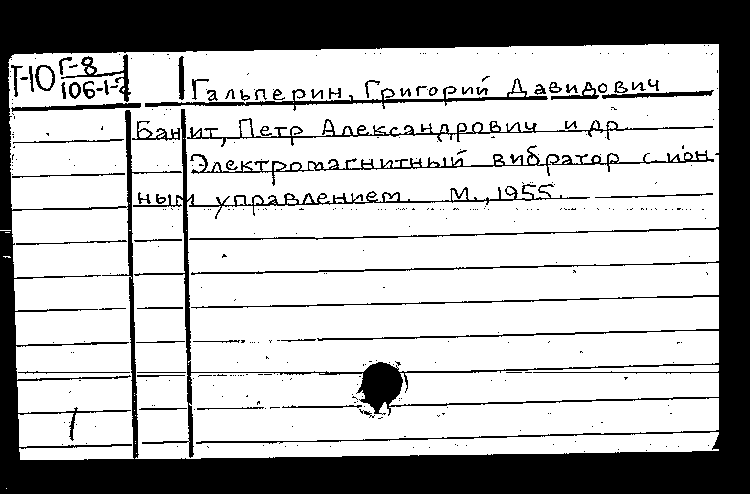 Т-10 Г-8
106-1-2
Гальперин, Григорий Давидович
Банит, Петр Александрович и др
Электромагнитный вибратор с ион-
ным управлением. М., 1955.